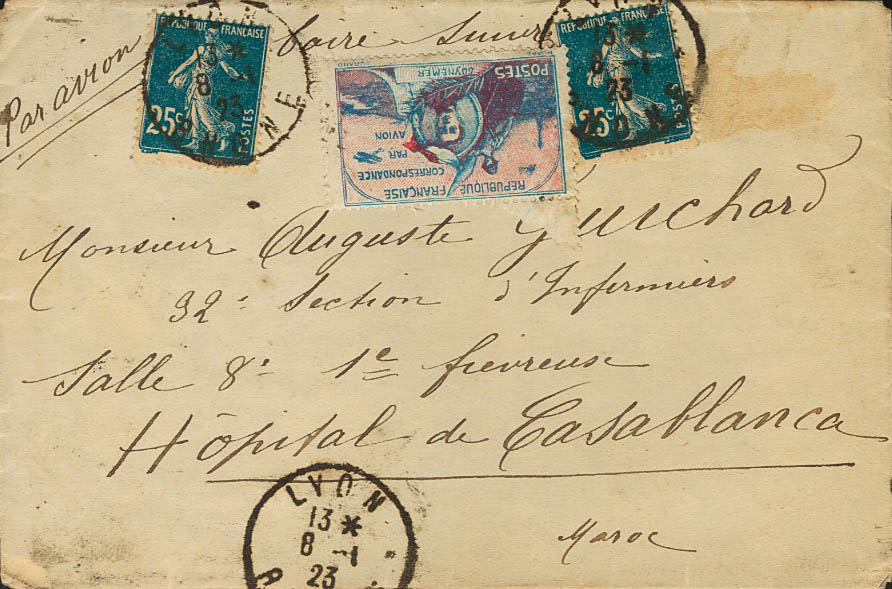 Par avion
faire suivre
REPUBLIQUE FRANÇAISE
25c
POSTES
13 *
8 -1
23
POSTES
GUYNEMER
PAR
AVION
CORRESPONDANCE
REPUBLIQUE FRANÇAISE
REPUBLIQUE FRANÇAISE
25c
POSTES
13 *
8 -1
23
Monsieur Auguste Guichard
32e Section d'Infirmiers
Salle 8e 1e fievreux
Hôpital de Casablanca
Maroc
LYON
13 *
8 -1
23